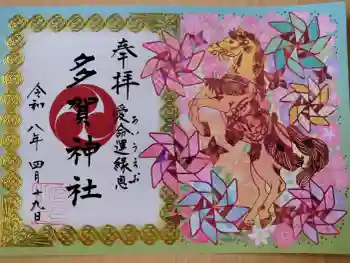 奉拝
愛命運縁恩
あいうえお
多賀神社
令和八年四月十九日